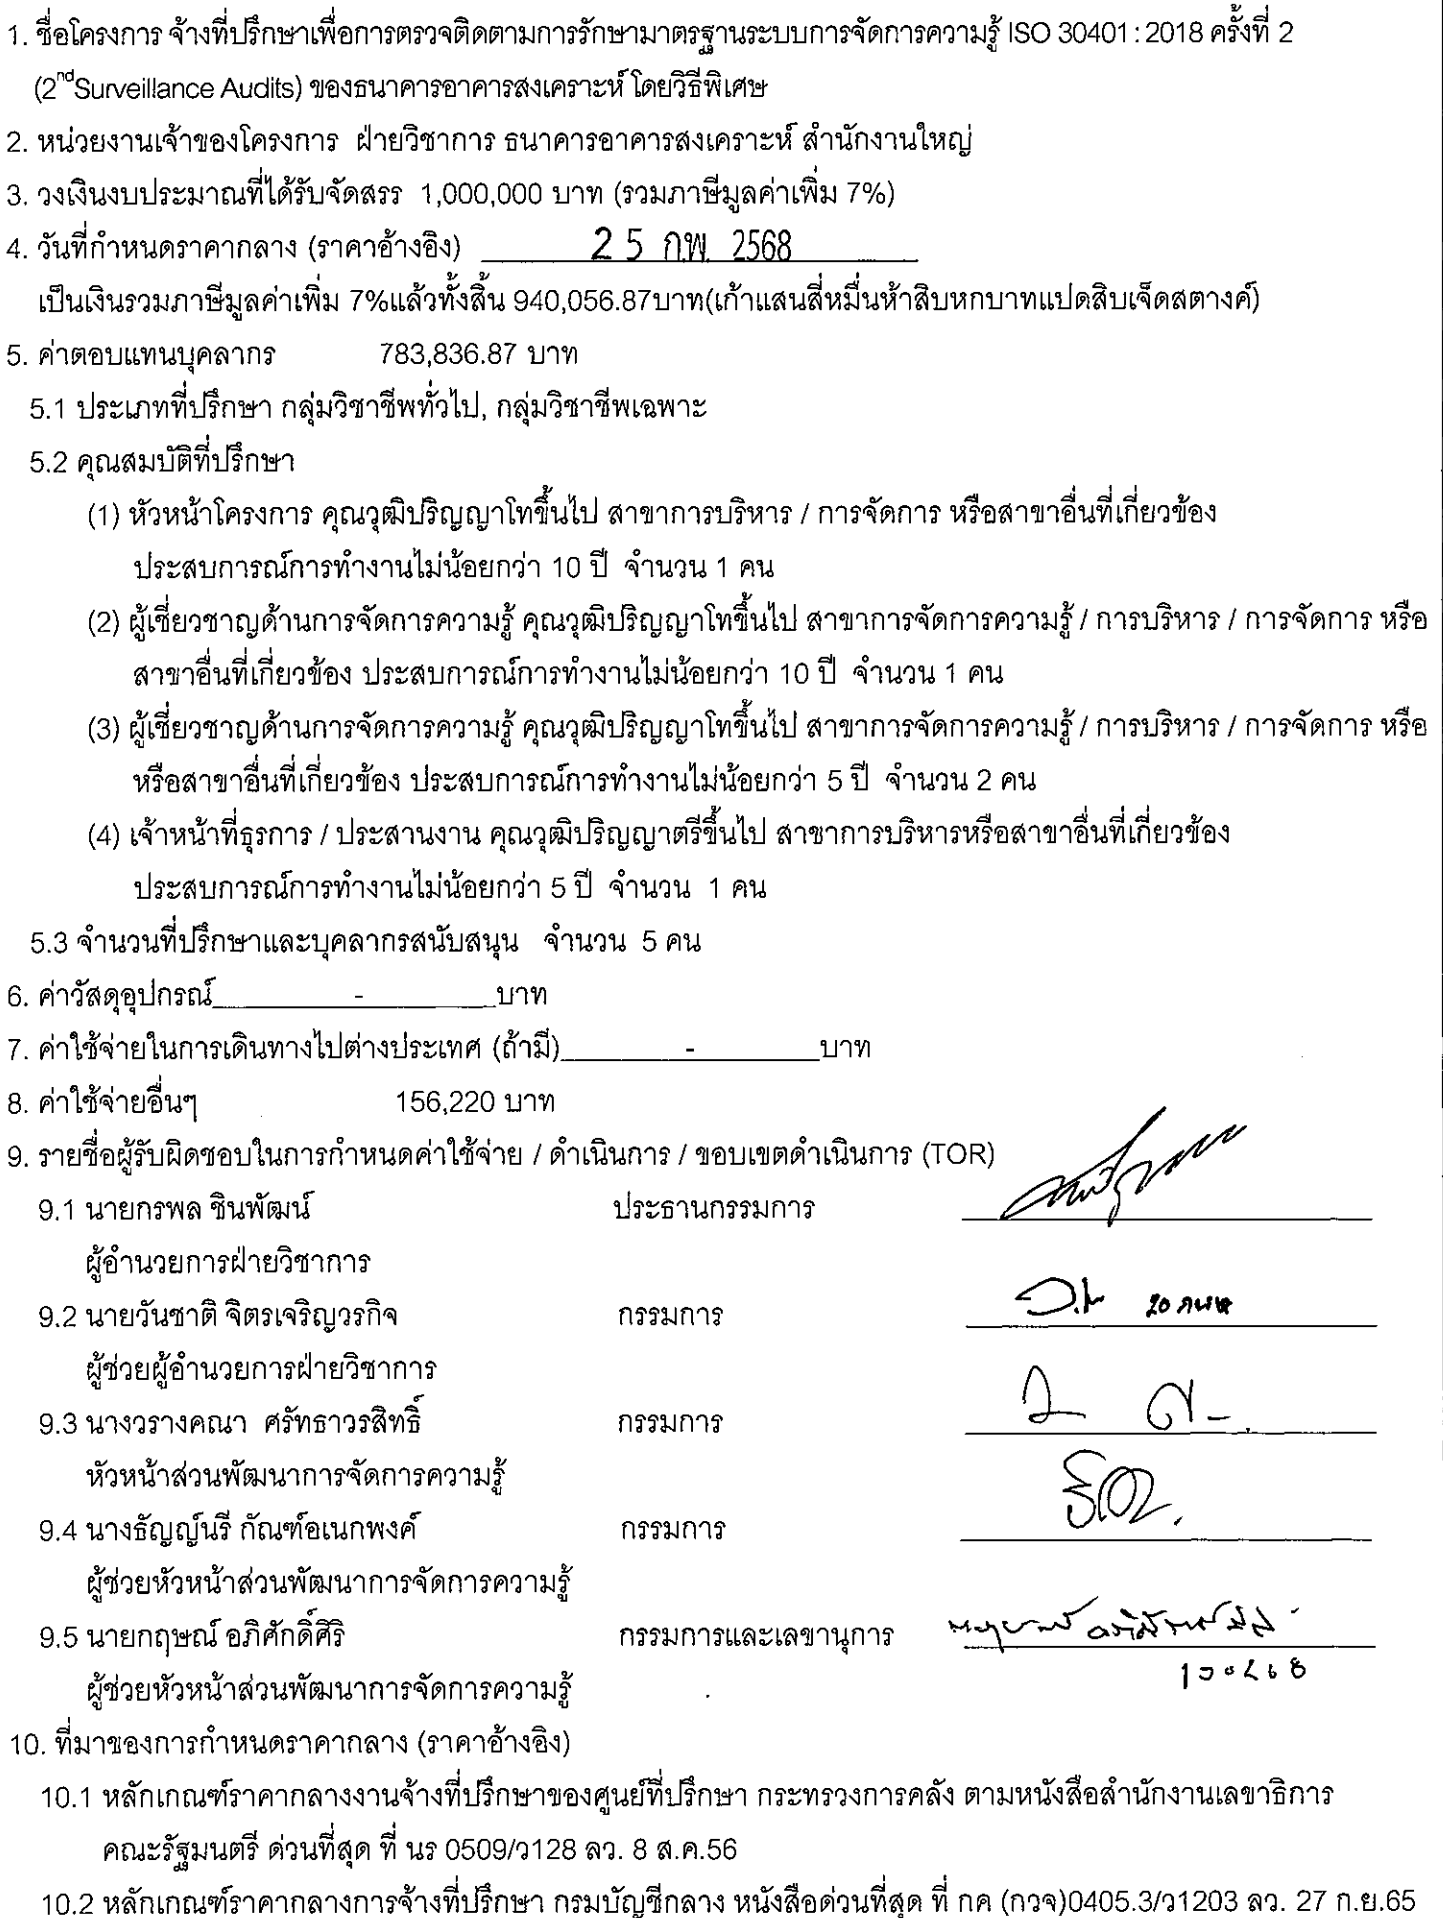 1. ชื่อโครงการ จ้างที่ปรึกษาเพื่อการตรวจติดตามการรักษามาตรฐานระบบการจัดการความรู้ ISO 30401 : 2018 ครั้งที่ 2
(2nd Surveillance Audits) ของธนาคารอาคารสงเคราะห์ โดยวิธีพิเศษ
2. หน่วยงานเจ้าของโครงการ ฝ่ายวิชาการ ธนาคารอาคารสงเคราะห์ สำนักงานใหญ่
3. วงเงินงบประมาณที่ได้รับจัดสรร 1,000,000 บาท (รวมภาษีมูลค่าเพิ่ม 7%)
4. วันที่กำหนดราคากลาง (ราคาอ้างอิง) 25 กพ. 2568
เป็นเงินรวมภาษีมูลค่าเพิ่ม 7%แล้วทั้งสิ้น 940,056.87บาท(เก้าแสนสี่หมื่นห้าสิบหกบาทแปดสิบเจ็ดสตางค์)
5. ค่าตอบแทนบุคลากร 783,836.87 บาท
5.1 ประเภทที่ปรึกษา กลุ่มวิชาชีพทั่วไป, กลุ่มวิชาชีพเฉพาะ
5.2 คุณสมบัติที่ปรึกษา
(1) หัวหน้าโครงการ คุณวุฒิปริญญาโทขึ้นไป สาขาการบริหาร / การจัดการ หรือสาขาอื่นที่เกี่ยวข้อง
ประสบการณ์การทำงานไม่น้อยกว่า 10 ปี จำนวน 1 คน
(2) ผู้เชี่ยวชาญด้านการจัดการความรู้ คุณวุฒิปริญญาโทขึ้นไป สาขาการจัดการความรู้ / การบริหาร / การจัดการ หรือ
สาขาอื่นที่เกี่ยวข้อง ประสบการณ์การทำงานไม่น้อยกว่า 10 ปี จำนวน 1 คน
(3) ผู้เชี่ยวชาญด้านการจัดการความรู้ คุณวุฒิปริญญาโทขึ้นไป สาขาการจัดการความรู้ / การบริหาร / การจัดการ หรือ
หรือสาขาอื่นที่เกี่ยวข้อง ประสบการณ์การทำงานไม่น้อยกว่า 5 ปี จำนวน 2 คน
(4) เจ้าหน้าที่ธุรการ / ประสานงาน คุณวุฒิปริญญาตรีขึ้นไป สาขาการบริหารหรือสาขาอื่นที่เกี่ยวข้อง
ประสบการณ์การทำงานไม่น้อยกว่า 5 ปี จำนวน 1 คน
5.3 จำนวนที่ปรึกษาและบุคลากรสนับสนุน จำนวน 5 คน
6. ค่าวัสดุอุปกรณ์ - บาท
7. ค่าใช้จ่ายในการเดินทางไปต่างประเทศ (ถ้ามี) - บาท
8. ค่าใช้จ่ายอื่นๆ 156,220 บาท
9. รายชื่อผู้รับผิดชอบในการกำหนดค่าใช้จ่าย / ดำเนินการ / ขอบเขตดำเนินการ (TOR)
9.1 นายกรพล ชินพัฒน์ ประธานกรรมการ
ผู้อำนวยการฝ่ายวิชาการ
9.2 นายวันชาติ จิตรเจริญวรกิจ กรรมการ
ผู้ช่วยผู้อำนวยการฝ่ายวิชาการ
9.3 นางวรางคณา ศรัทธาวรสิทธิ์ กรรมการ
หัวหน้าส่วนพัฒนาการจัดการความรู้
9.4 นางธัญญ์นรี กัณฑ์อเนกพงค์ กรรมการ
ผู้ช่วยหัวหน้าส่วนพัฒนาการจัดการความรู้
9.5 นายกฤษณ์ อภิศักดิ์ศิริ กรรมการและเลขานุการ
ผู้ช่วยหัวหน้าส่วนพัฒนาการจัดการความรู้
10. ที่มาของการกำหนดราคากลาง (ราคาอ้างอิง)
10.1 หลักเกณฑ์ราคากลางงานจ้างที่ปรึกษาของศูนย์ที่ปรึกษา กระทรวงการคลัง ตามหนังสือสำนักงานเลขาธิการ
คณะรัฐมนตรี ด่วนที่สุด ที่ นร 0509/ว128 ลว. 8 ส.ค.56
10.2 หลักเกณฑ์ราคากลางการจ้างที่ปรึกษา กรมบัญชีกลาง หนังสือด่วนที่สุด ที่ กค (กวจ)0405.3/ว1203 ลว. 27 ก.ย.65